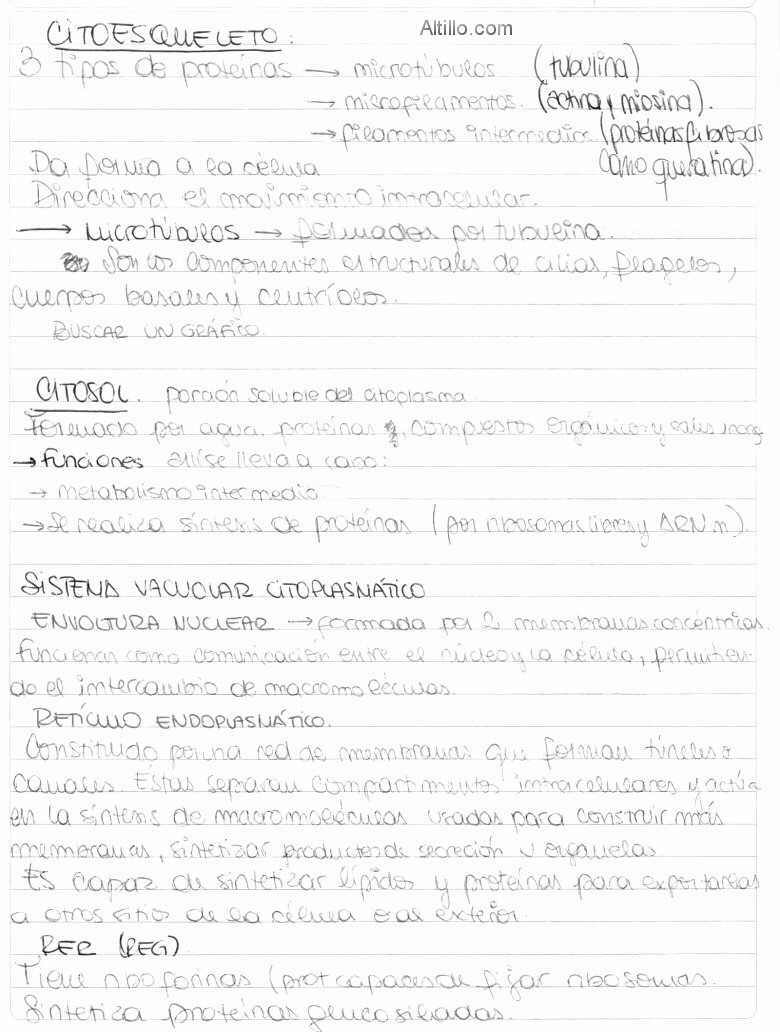 Altillo.com
CITOESQUELETO:
3 tipos de proteínas → microtúbulos (tubulina)
→ microfilamentos. (actina y miosina).
→ filamentos intermedios (proteínas fibrosas
como queratina).
Da forma a la célula
Direcciona el movimiento intracelular.
→ Microtúbulos → formados por tubulina.
Son los componentes estructurales de cilias, flagelos,
cuerpos basales y centríolos.
BUSCAR UN GRÁFICO.
CITOSOL. porción soluble del citoplasma
Formado por agua, proteínas, compuestos orgánicos y sales inorg
→ funciones allí se lleva a cabo:
→ metabolismo intermedio
→ Se realiza síntesis de proteínas (por ribosomas libres y ARN m).
SISTEMA VACUOLAR CITOPLASMÁTICO
ENVOLTURA NUCLEAR → formada por 2 membranas concéntricas.
funcionan como comunicación entre el núcleo y la célula, permitien-
do el intercambio de macromoléculas.
RETÍCULO ENDOPLASMÁTICO.
Constituido por una red de membranas que forman túneles o
canales. Estas separan compartimentos intracelulares y actúa
en la síntesis de macromoléculas usadas para construir más
membranas, sintetizar productos de secreción y organelas
Es capaz de sintetizar lípidos y proteínas para exportarlas
a otros sitios de la célula o al exterior.
RER (REG)
Tiene riboforinas (prot capaces de fijar ribosomas.
Sintetiza proteínas glucosiladas.